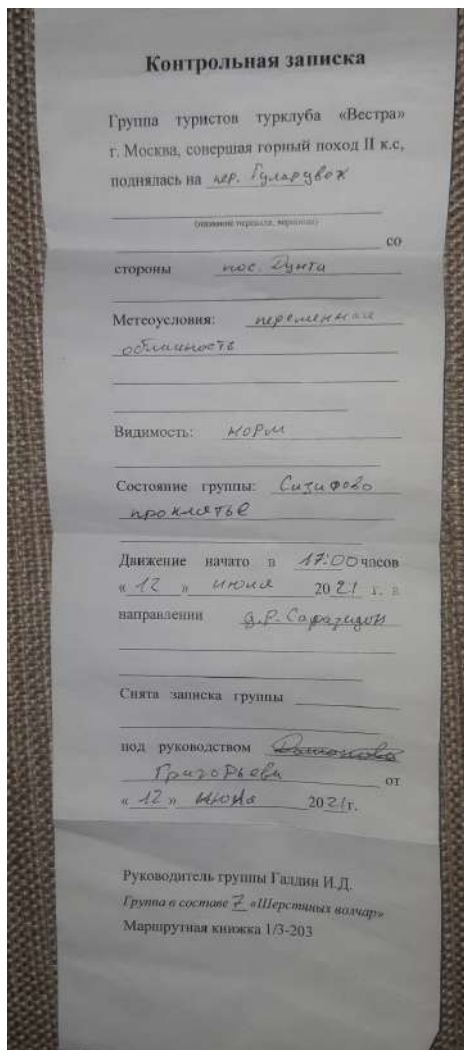 Контрольная записка
Группа туристов турклуба «Вестра»
г. Москва, совершая горный поход II к.с,
поднялась на пер. Гуларцвох
(название перевала, вершины)
со
стороны пос. Дунта
Метеоусловия: переменная
облачность
Видимость: норм
Состояние группы: Сизифово
проклятье
Движение начато в 17:00 часов
« 12 » июня 2021 г. в
направлении д.р. Саразидон
Снята записка группы
под руководством
Григорьева от
« 12 » июня 2021г.
Руководитель группы Галдин И.Д.
Группа в составе 7 «Шерстяных волчар»
Маршрутная книжка 1/3-203